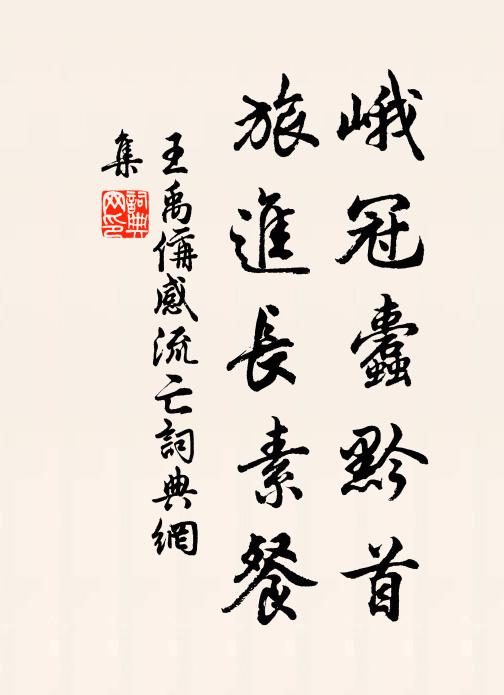 峨冠蠹黔首
旅進長素餐
王禹偁感流亡詞典網
集
詞典网印